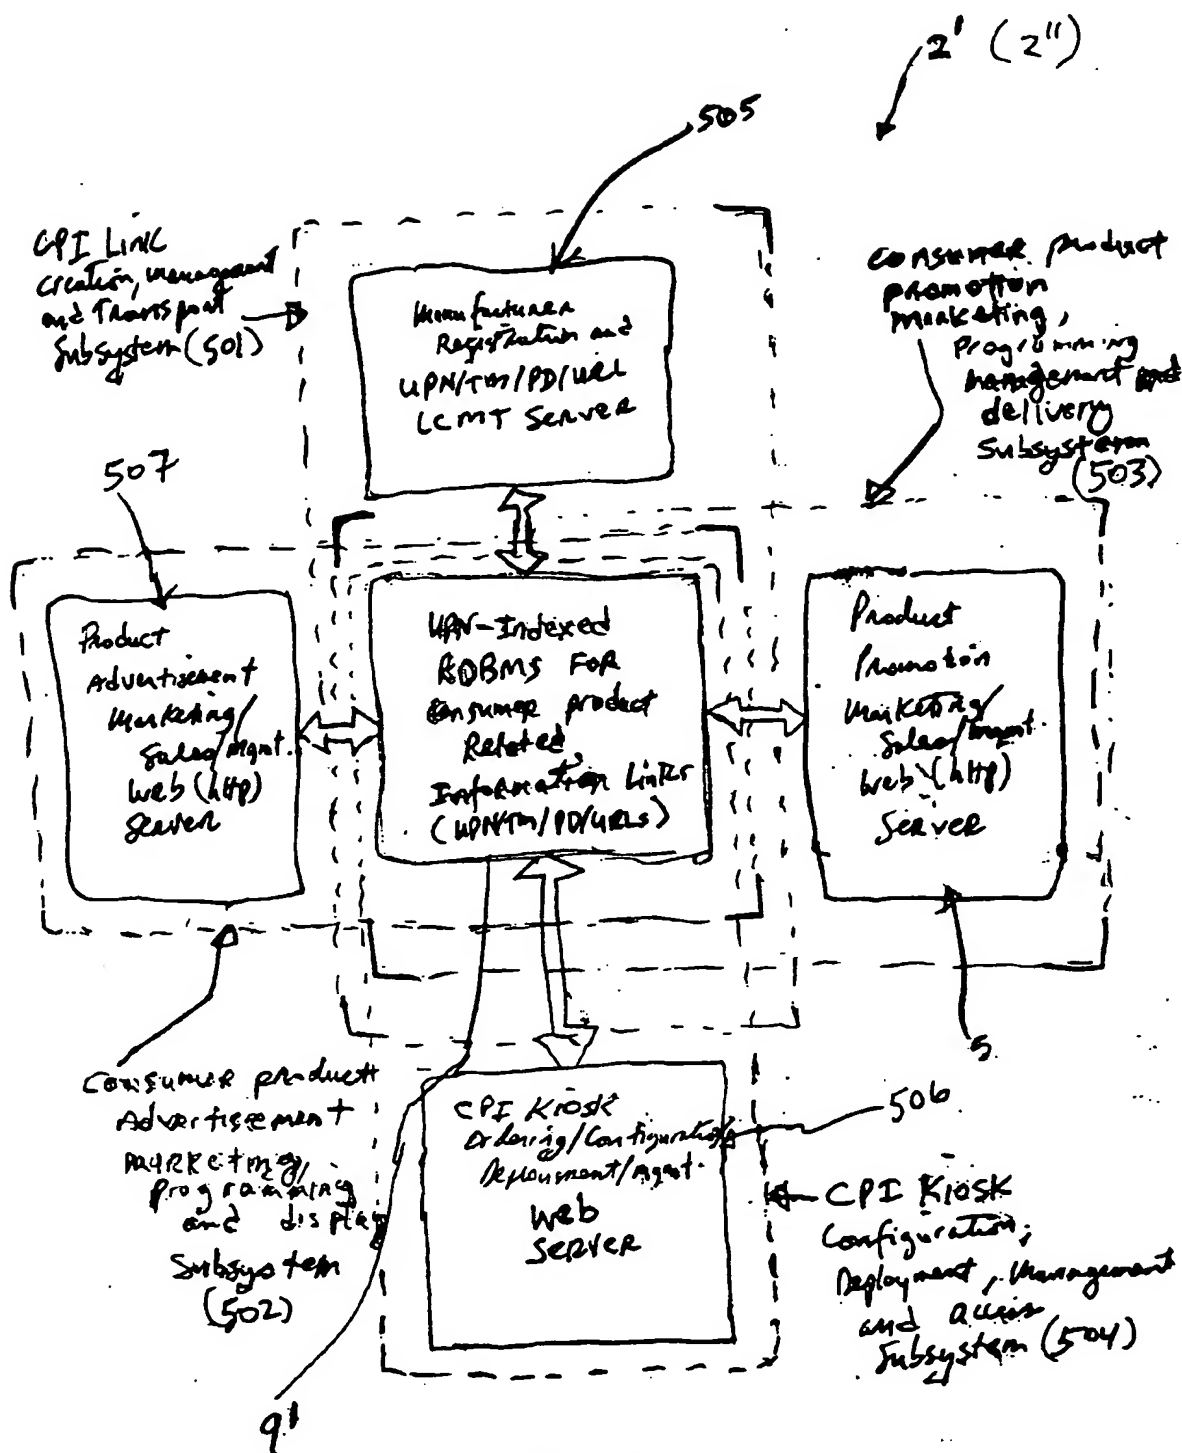 2' (2'')
505
CPI Link
creation, management
and Transport
Subsystem (501)
Manufacturer
Registration and
UPN/TM/PD/URL
LCMT SERVER
consumer product
promotion
marketing,
programming
management and
delivery
subsystem
(503)
507
Product
Advertisement
Marketing/
Sales/Mgmt.
Web (http)
Server
UPN-Indexed
RDBMS FOR
Consumer product
Related
Information Links
(UPN/TM/PD/URLs)
Product
Promotion
Marketing/
Sales/Mgmt.
Web (http)
Server
5
Consumer product
Advertisement
Marketing,
programming
and display
Subsystem
(502)
CPI Kiosk
Ordering/Configuration
Deployment/Mgmt.
Web
Server
506
CPI Kiosk
Configuration,
Deployment, Management
and access
Subsystem (504)
9'